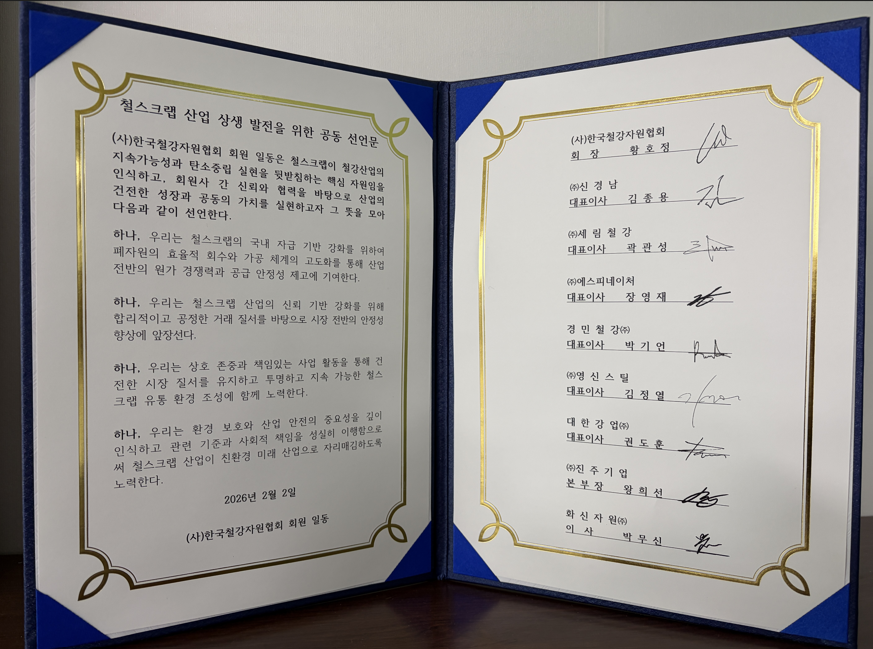 철스크랩 산업 상생 발전을 위한 공동 선언문
(사)한국철강자원협회 회원 일동은 철스크랩이 철강산업의
지속가능성과 탄소중립 실현을 뒷받침하는 핵심 자원임을
인식하고, 회원사 간 신뢰와 협력을 바탕으로 산업의
건전한 성장과 공동의 가치를 실현하고자 그 뜻을 모아
다음과 같이 선언한다.
하나, 우리는 철스크랩의 국내 자급 기반 강화를 위하여
폐자원의 효율적 회수와 가공 체계의 고도화를 통해 산업
전반의 원가 경쟁력과 공급 안정성 제고에 기여한다.
하나, 우리는 철스크랩 산업의 신뢰 기반 강화를 위해
합리적이고 공정한 거래 질서를 바탕으로 시장 전반의 안정성
향상에 앞장선다.
하나, 우리는 상호 존중과 책임있는 사업 활동을 통해 건
전한 시장 질서를 유지하고 투명하고 지속 가능한 철스
크랩 유통 환경 조성에 함께 노력한다.
하나, 우리는 환경 보호와 산업 안전의 중요성을 깊이
인식하고 관련 기준과 사회적 책임을 성실히 이행함으로
써 철스크랩 산업이 친환경 미래 산업으로 자리매김하도록
노력한다.
2026년 2월 2일
(사)한국철강자원협회 회원 일동
(사)한국철강자원협회
회 장 황호정
㈜신경남
대표이사 김종용
㈜세림철강
대표이사 곽관성
㈜에스피네이처
대표이사 장영재
경민철강㈜
대표이사 박기언
㈜명신스틸
대표이사 김정열
대한강업㈜
대표이사 권도훈
㈜진주기업
본부장 왕희선
화신자원㈜
이 사 박무신